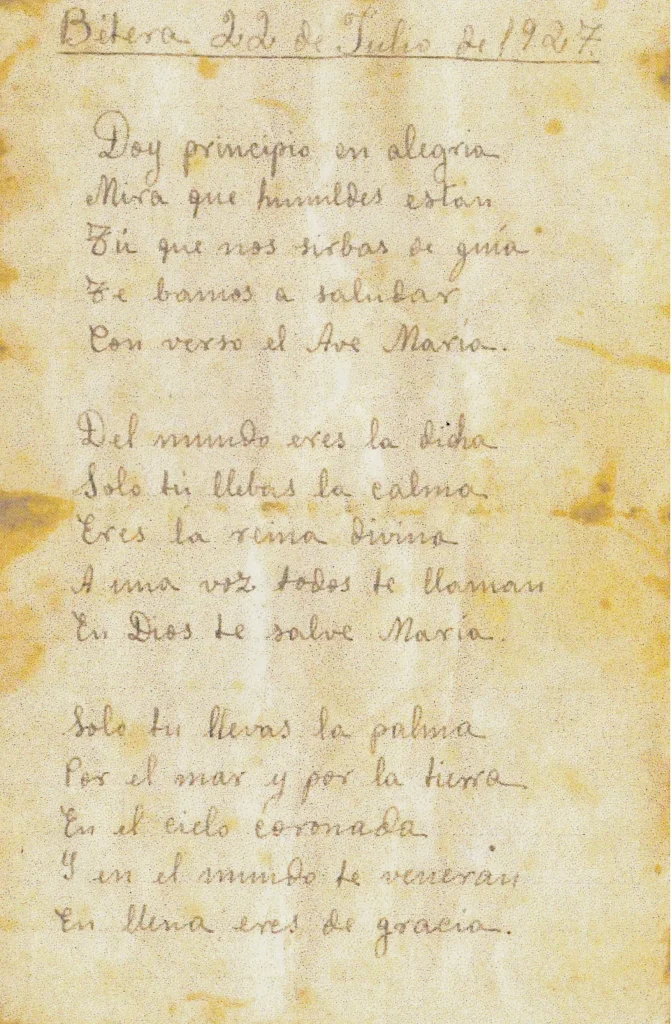 Bitera 22 de Julio de 1927.
Doy principio en alegria
Mira que humildes estan
Tú que nos sirbas de guía
Te bamos a saludar
Con verso el Ave María.
Del mundo eres la dicha
Solo tú llebas la calma
Eres la reina divina
A una voz todos te llaman
En Dios te salve María.
Solo tu llevas la palma
Por el mar y por la tierra
En el cielo coronada
Y en el mundo te venerán
En llena eres de gracia.